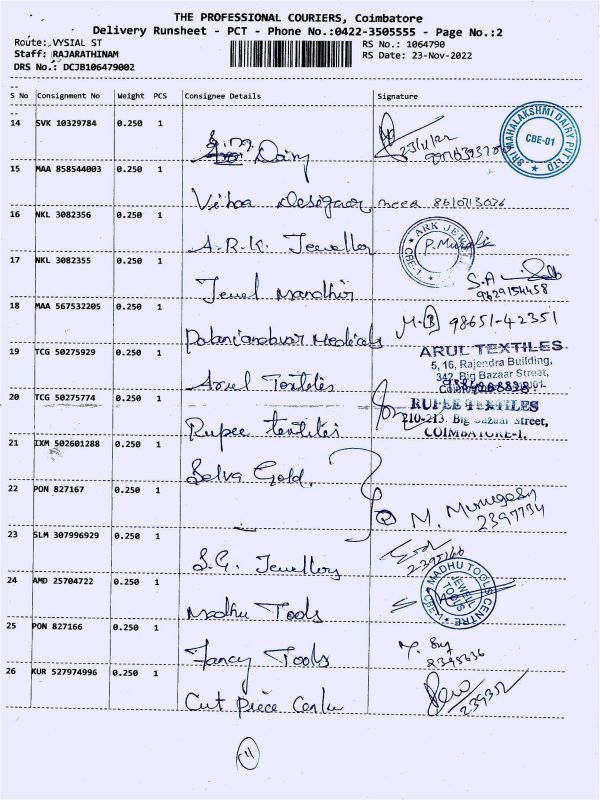 THE PROFESSIONAL COURIERS, Coimbatore
Delivery Runsheet - PCT - Phone No.:0422-3505555 - Page No.:2
Route: VYSIAL ST
RS No.: 1064790
Staff: RAJARATHINAM
RS Date: 23-Nov-2022
DRS No.: DCJB106479002
S No Consignment No Weight PCS Consignee Details Signature
14 SVK 10329784 0.250 1
Dairy
SRI MAHALAKSHMI DAIRY PVT LTD
CBE-01
15 MAA 858544003 0.250 1
16 NKL 3082356 0.250 1
A.R.K. Jeweller
ARK JEWEL
CBE-1
17 NKL 3082355 0.250 1
Jewel Mandhir
S.A
9629154458
18 MAA 567532205 0.250 1
Medicals
98651-42351
19 TCG 50275929 0.250 1
Arul Textiles
ARUL TEXTILES
5, 16, Rajendra Building,
342, Big Bazaar Street,
20 TCG 50275774 0.250 1
Rupee textiles
RUPEE TEXTILES
210-213. Big Bazaar Street,
COIMBATORE-1.
21 IXM 502601288 0.250 1
Selva Gold.
22 PON 827167 0.250 1
M. Murugesan
2397734
23 SLM 307996929 0.250 1
S.G. Jewellery
24 AMD 25704722 0.250 1
Madhu Tools
MADHU TOOLS CENTRE
JEWEL TOOLS
CBE-1
25 PON 827166 0.250 1
Fancy Tools
2395636
26 KUR 527974996 0.250 1
Cut piece Center
239352
11